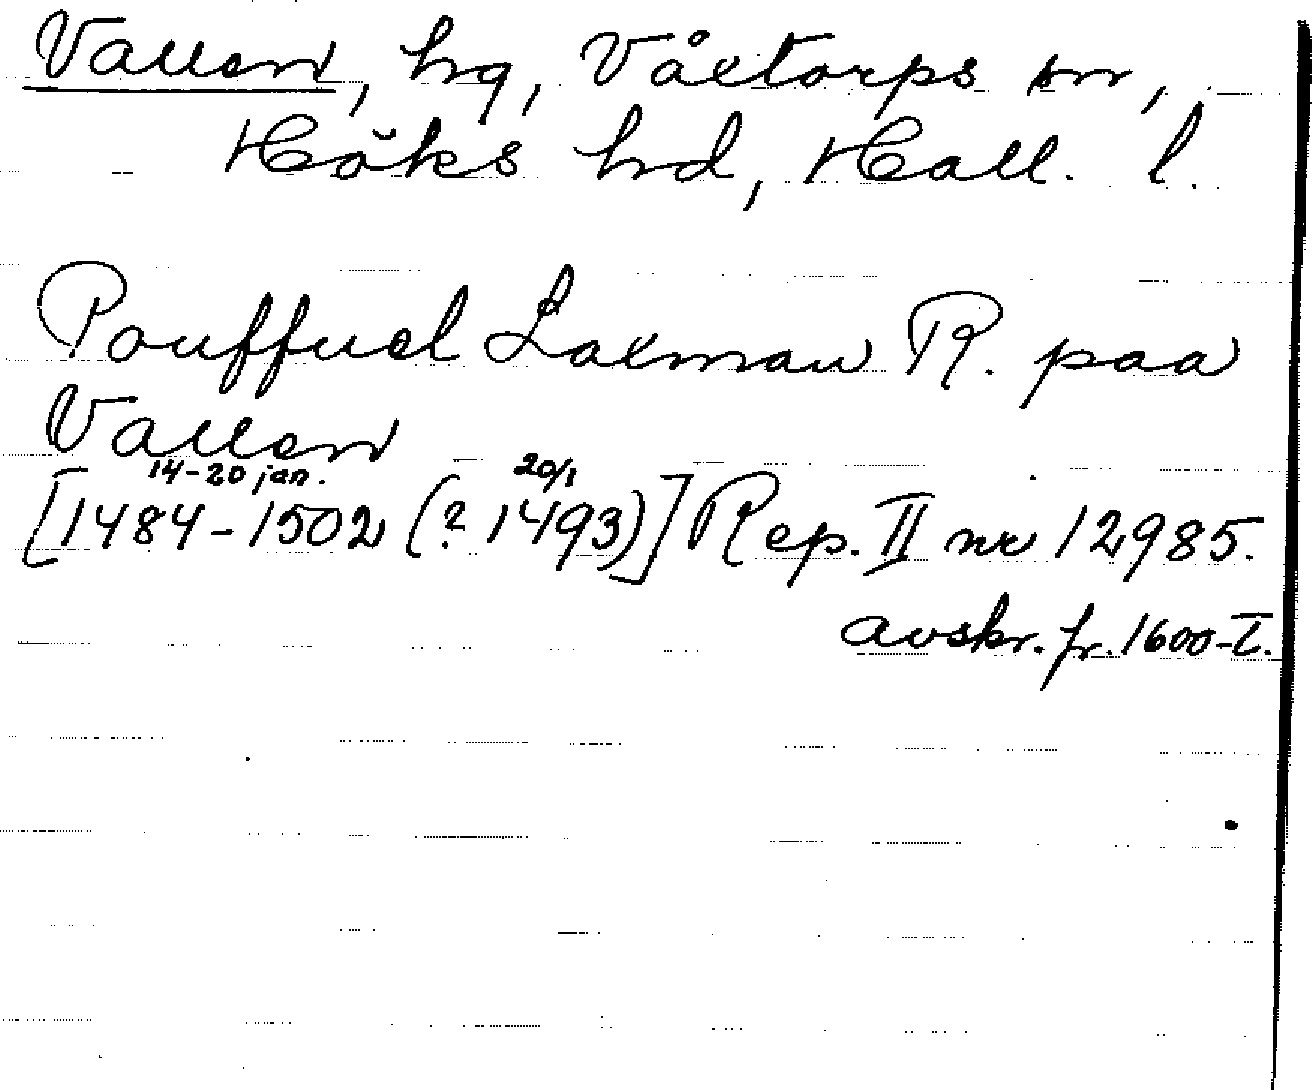 Vallen, hg, Våxtorps sn,
Höks hd, Hall. l.
Pouffuel Laxman R. paa
Vallen
14-20 jan. 20/1
[1484-1502 (? 1493)] Rep. II nr 12985.
avskr. fr. 1600-t.